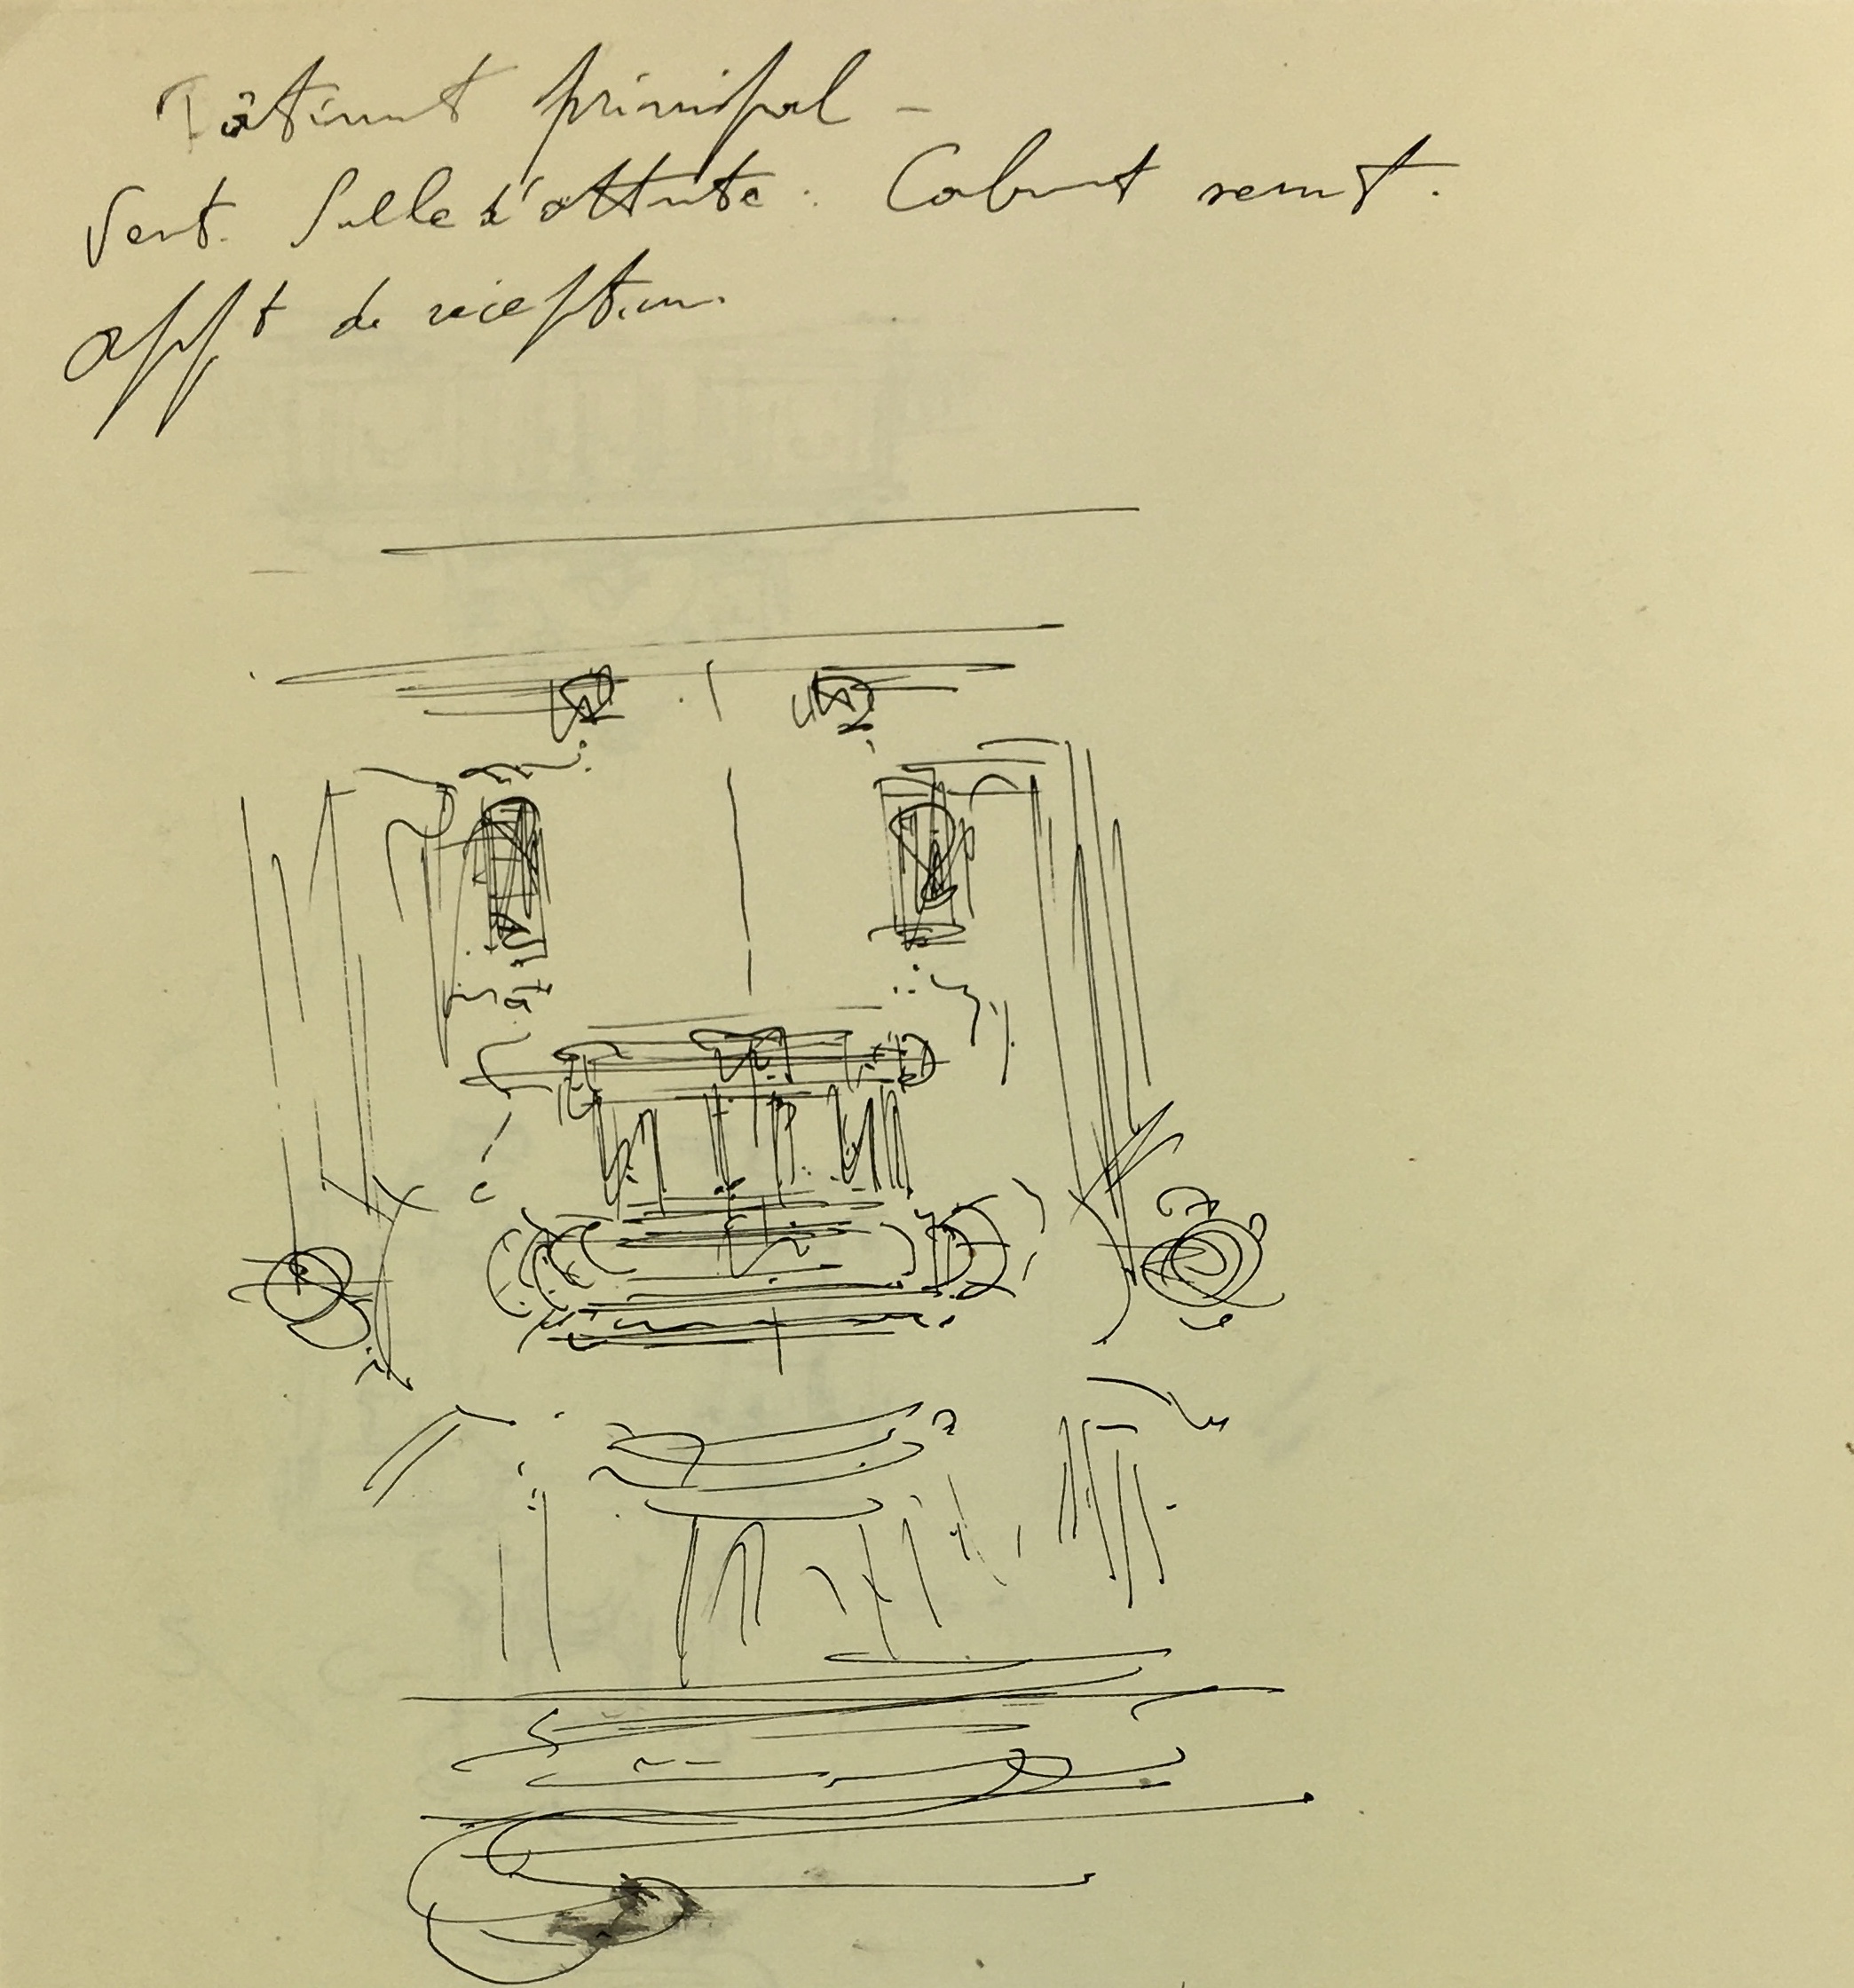 Bâtiment principal –
Vest. Salle d'attente. Cabinet
appt de réception.